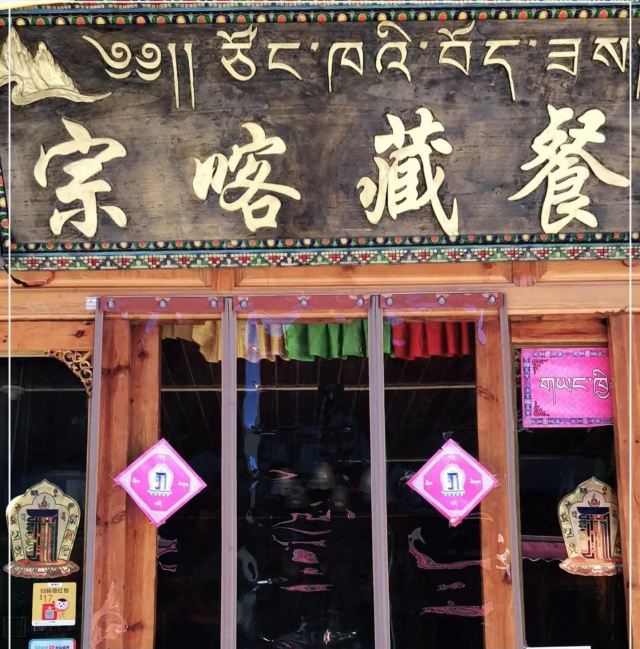 ༄༅།། ཙོང་ཁའི་བོད་ཟས
宗喀藏餐
གཡང་ཁྲི
扫码领红包
17